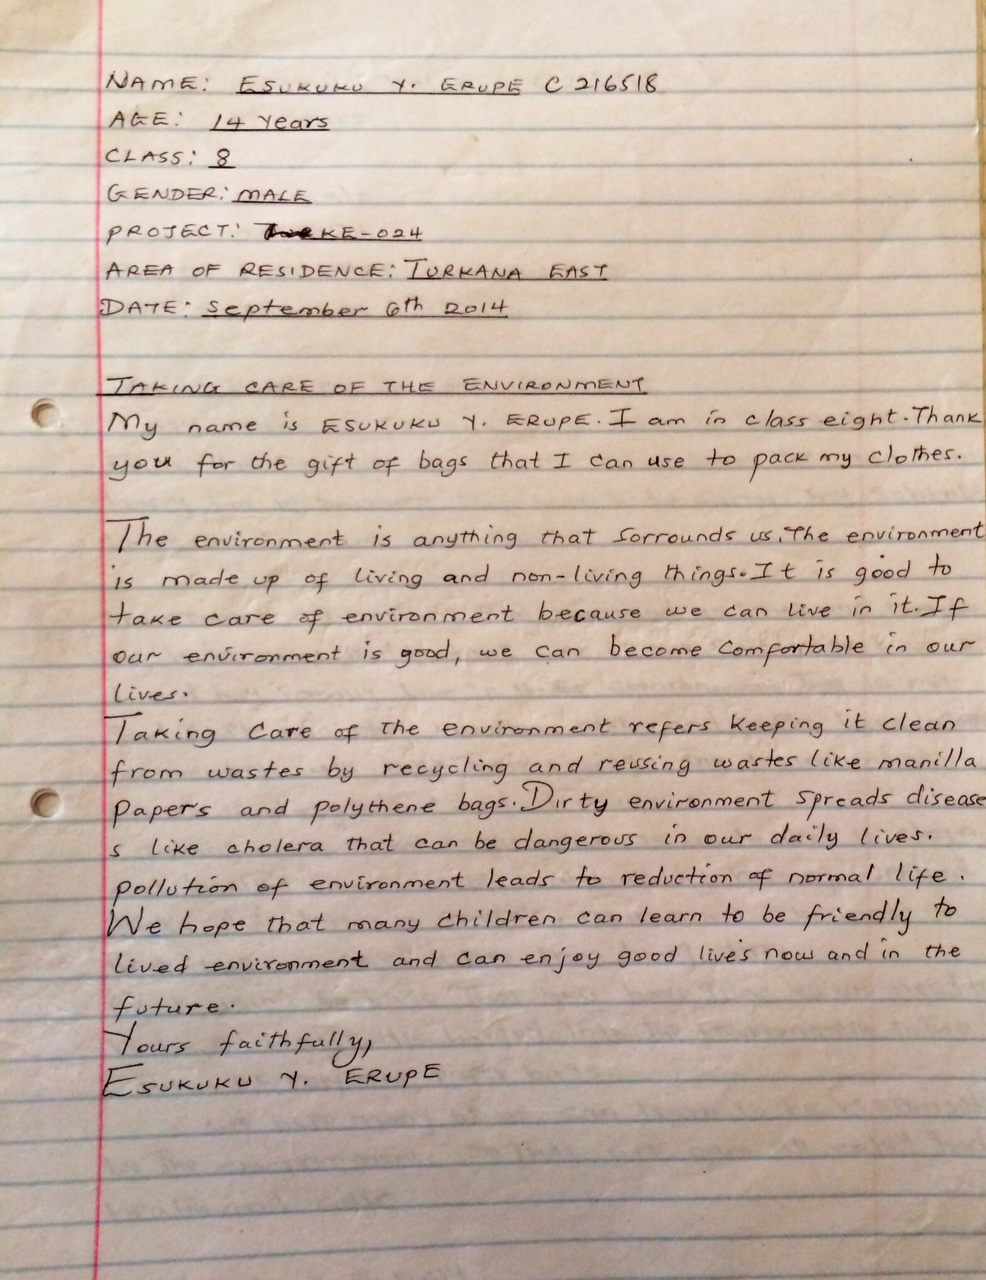 NAME: ESUKUKU Y. ERUPE C 216518
AGE: 14 Years
CLASS: 8
GENDER: MALE
PROJECT: KE-024
AREA OF RESIDENCE: TURKANA EAST
DATE: September 6th 2014
TAKING CARE OF THE ENVIRONMENT
My name is ESUKUKU Y. ERUPE. I am in class eight. Thank
you for the gift of bags that I can use to pack my clothes.
The environment is anything that sorrounds us. The environment
is made up of living and non-living things. It is good to
take care of environment because we can live in it. If
our environment is good, we can become comfortable in our
lives.
Taking care of the environment refers keeping it clean
from wastes by recycling and reusing wastes like manilla
papers and polythene bags. Dirty environment spreads disease
s like cholera that can be dangerous in our daily lives.
pollution of environment leads to reduction of normal life.
We hope that many children can learn to be friendly to
lived environment and can enjoy good lives now and in the
future.
Yours faithfully,
ESUKUKU Y. ERUPE